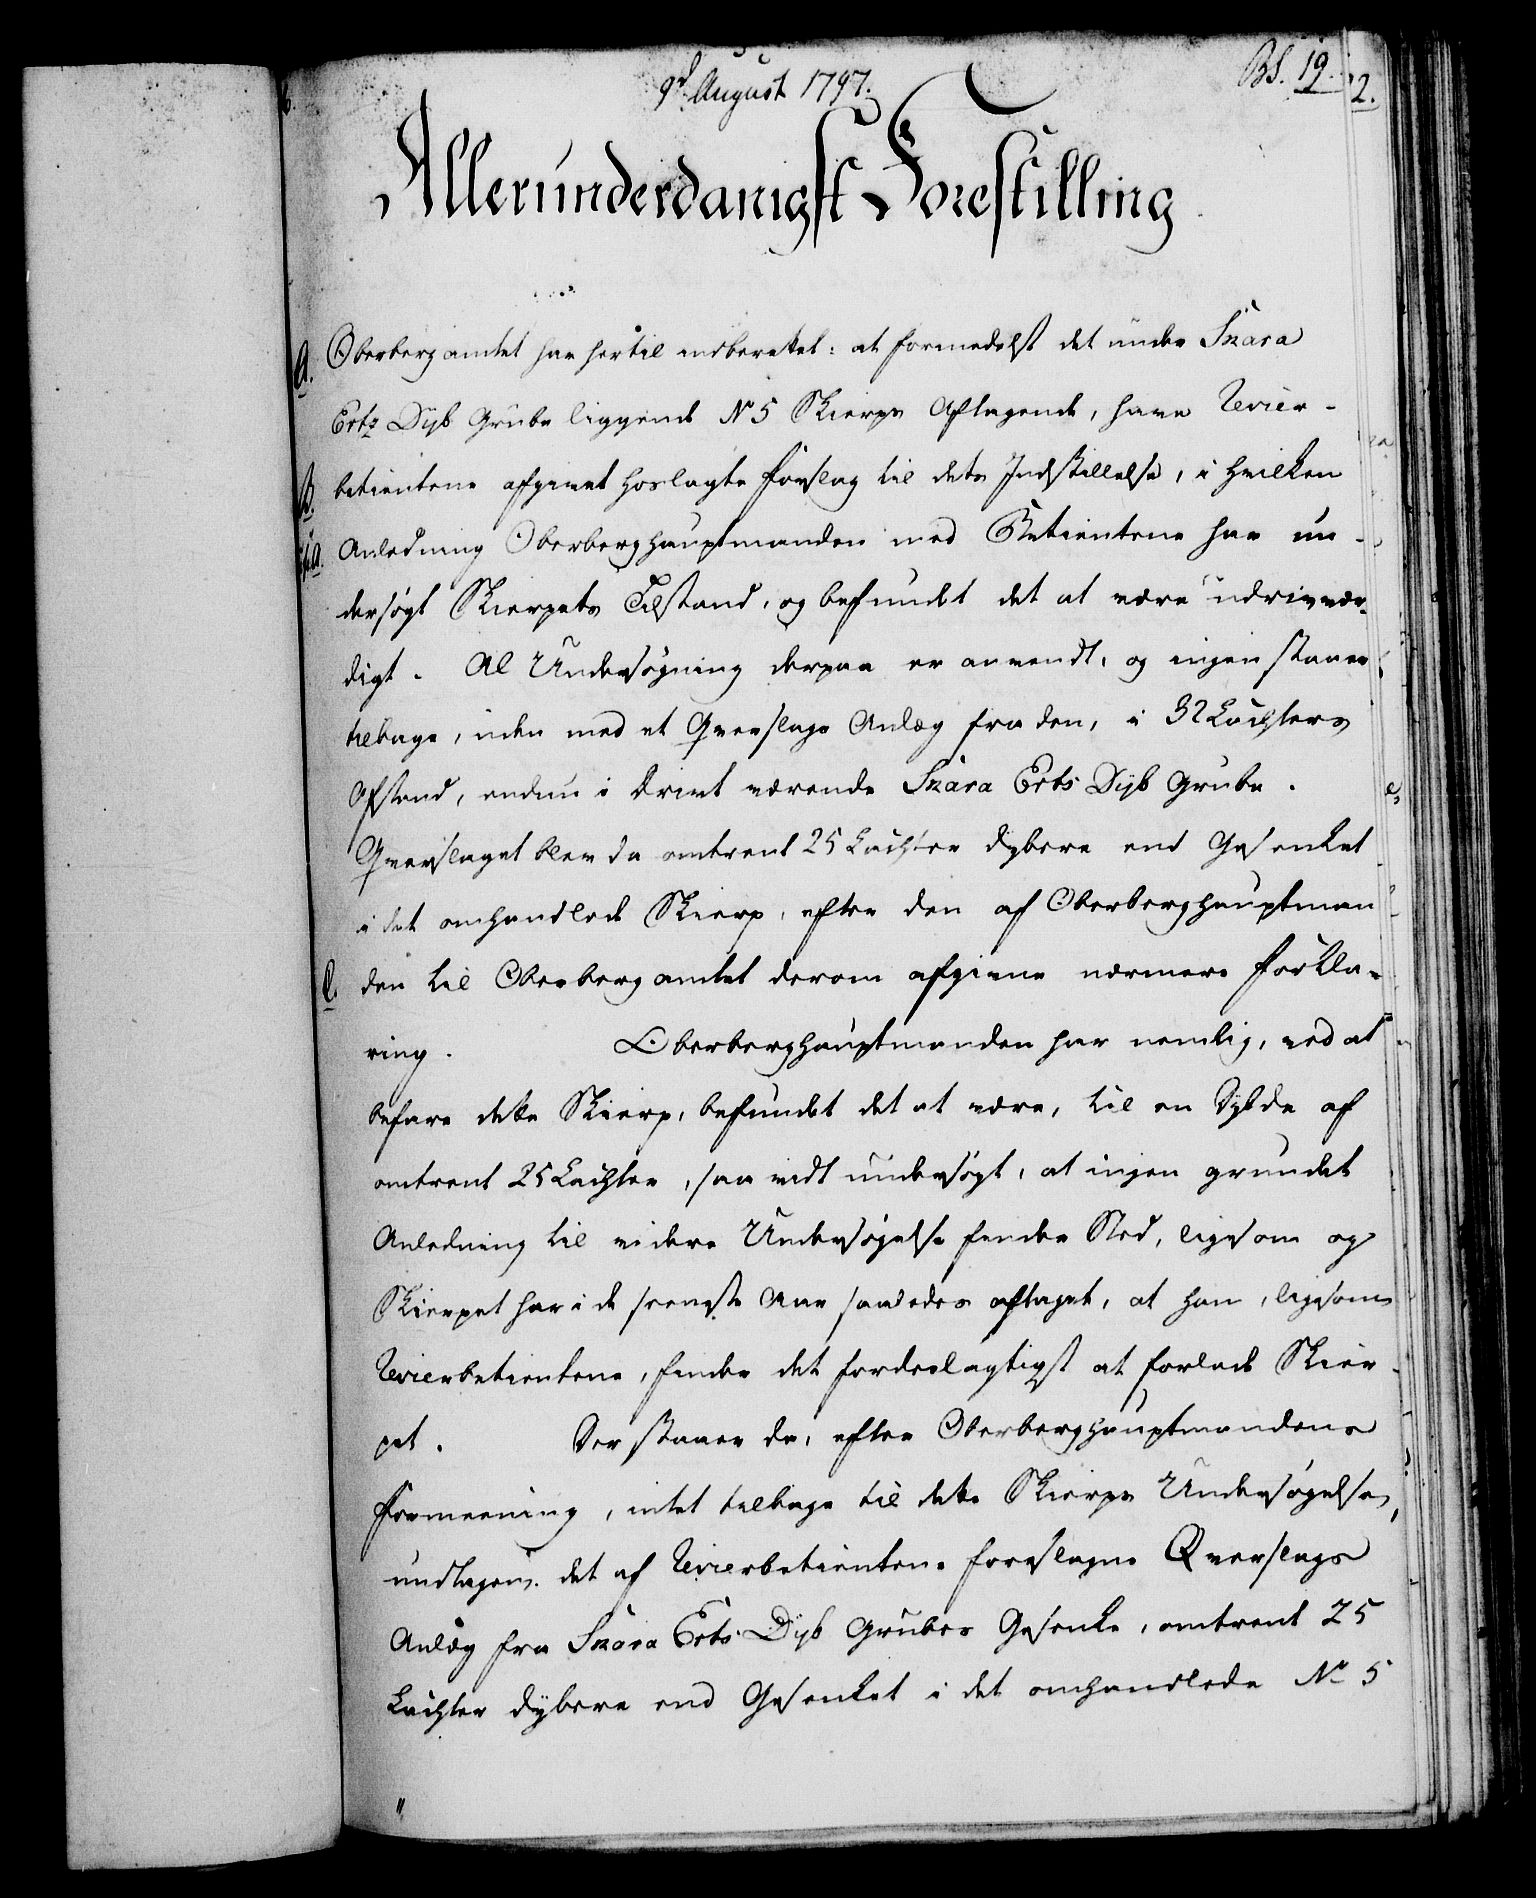 9d August 1797.
BS. 19.
2.
Allerunderdanigst Forestilling
A. Oberbergamtet har hertil indberettet: at formedelst det under Svara
Ertz Dyb Grube liggende No 5 Skierps Aftagende, have Revier-
B. betientene afgivet hoslagte Forslag til dets Indstillelse, i hvilken
Anledning Oberberghauptmanden med Betientene har un-
dersøgt Skierpets Tilstand, og befundet det at være udrivvær-
digt. Al Undersøgning derpaa er anvendt, og ingen staaer
tilbage, uden med et Qverslags Anlæg fra den, i 32 Lachters
Afstand, endnu i Drivt værende Svara Erts Dyb Grube.
Qverslaget blev da omtrent 25 Lachter dybere end Gesenket
i det omhandlede Skierp, efter den af Oberberghauptman
C. den til Oberbergamtet derom afgivne nærmere Forkla-
ring. Oberberghauptmanden har nemlig, ved at
befare dette Skierp, befundet det at være, til en Dybde af
omtrent 25 Lachter, saa vidt undersøgt, at ingen grundet
Anledning til videre Undersøgelse finder Sted, ligesom og
Skierpet har i de seeneste Aar saaledes aftaget, at han, ligesom
Revierbetientene, finder det fordeelagtigst at forlade Skier-
pet. Der staaer da, efter Oberberghauptmandens
Formeening, intet tilbage til dette Skierps Undersøgelse,
undtagen det af Revierbetientene foreslagne Qverslags
Anlæg fra Svara Erts Dyb Grubes Gesenke, omtrent 25
Lachter dybere end Gesenket i det omhandlede No 5